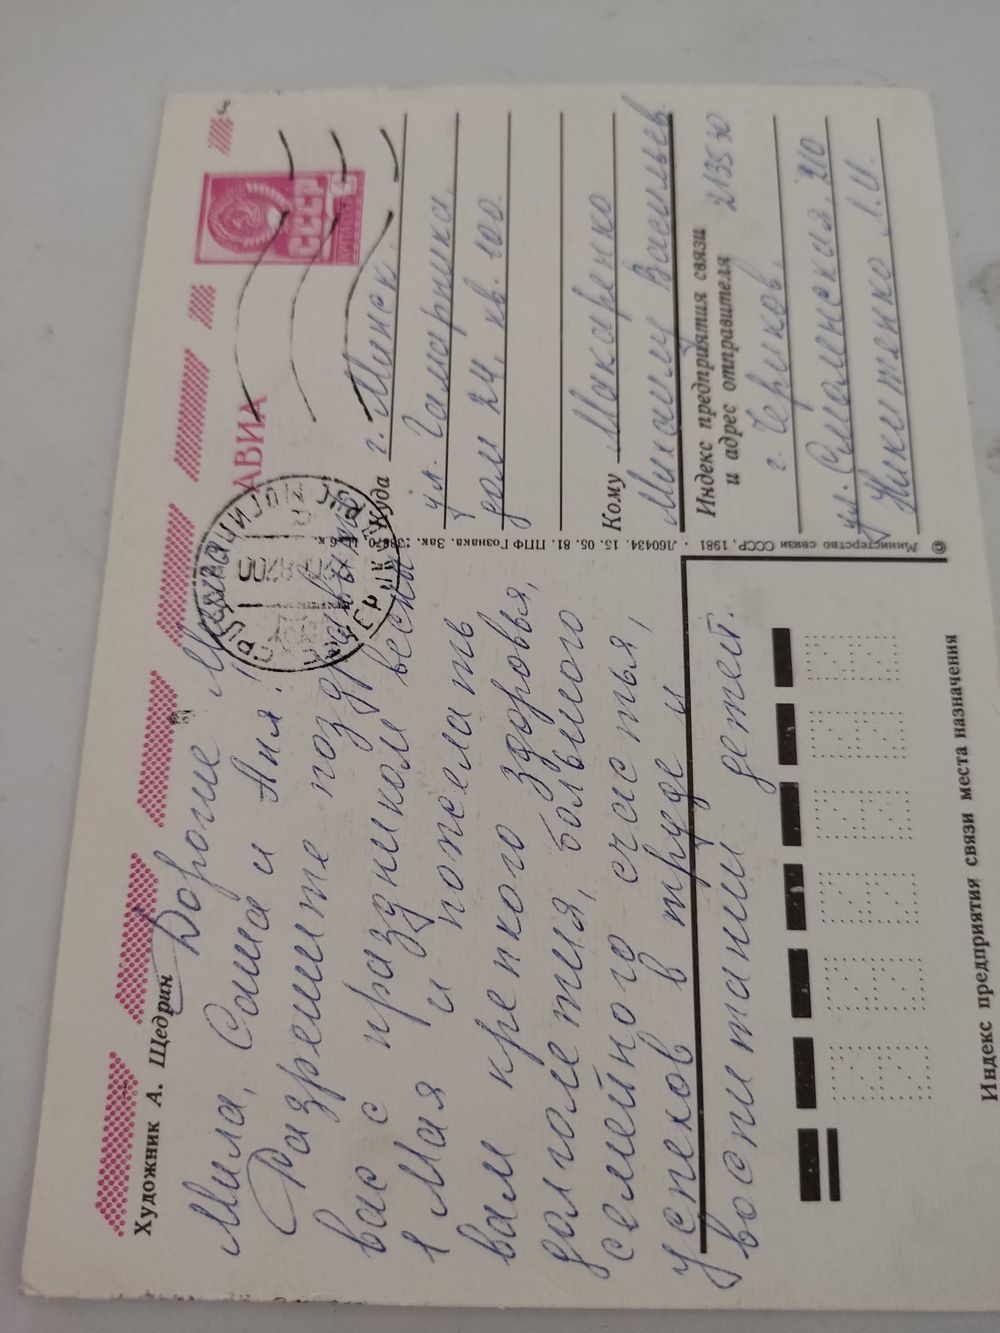 Художник А. Щедрин
Дорогие Миша,
Мила, Саша и Аня!
Разрешите поздравить
вас с праздником весны
1 Мая и пожелать
вам крепкого здоровья,
долголетия, большого
семейного счастья,
успехов в труде и
воспитании детей.
АВИА
СССР
Куда г. Минск,
ул. Гамарника,
дом 24, кв. 100
Кому Макаренко
Михаилу Васильев.
Индекс предприятия связи
и адрес отправителя 213530
г. Чериков,
ул. Смоленская, 210
Никитенко Л.И.
© Министерство связи СССР, 1981 · Л60434. 15. 05. 81. ППФ Гознака. Зак.
Индекс предприятия связи места назначения